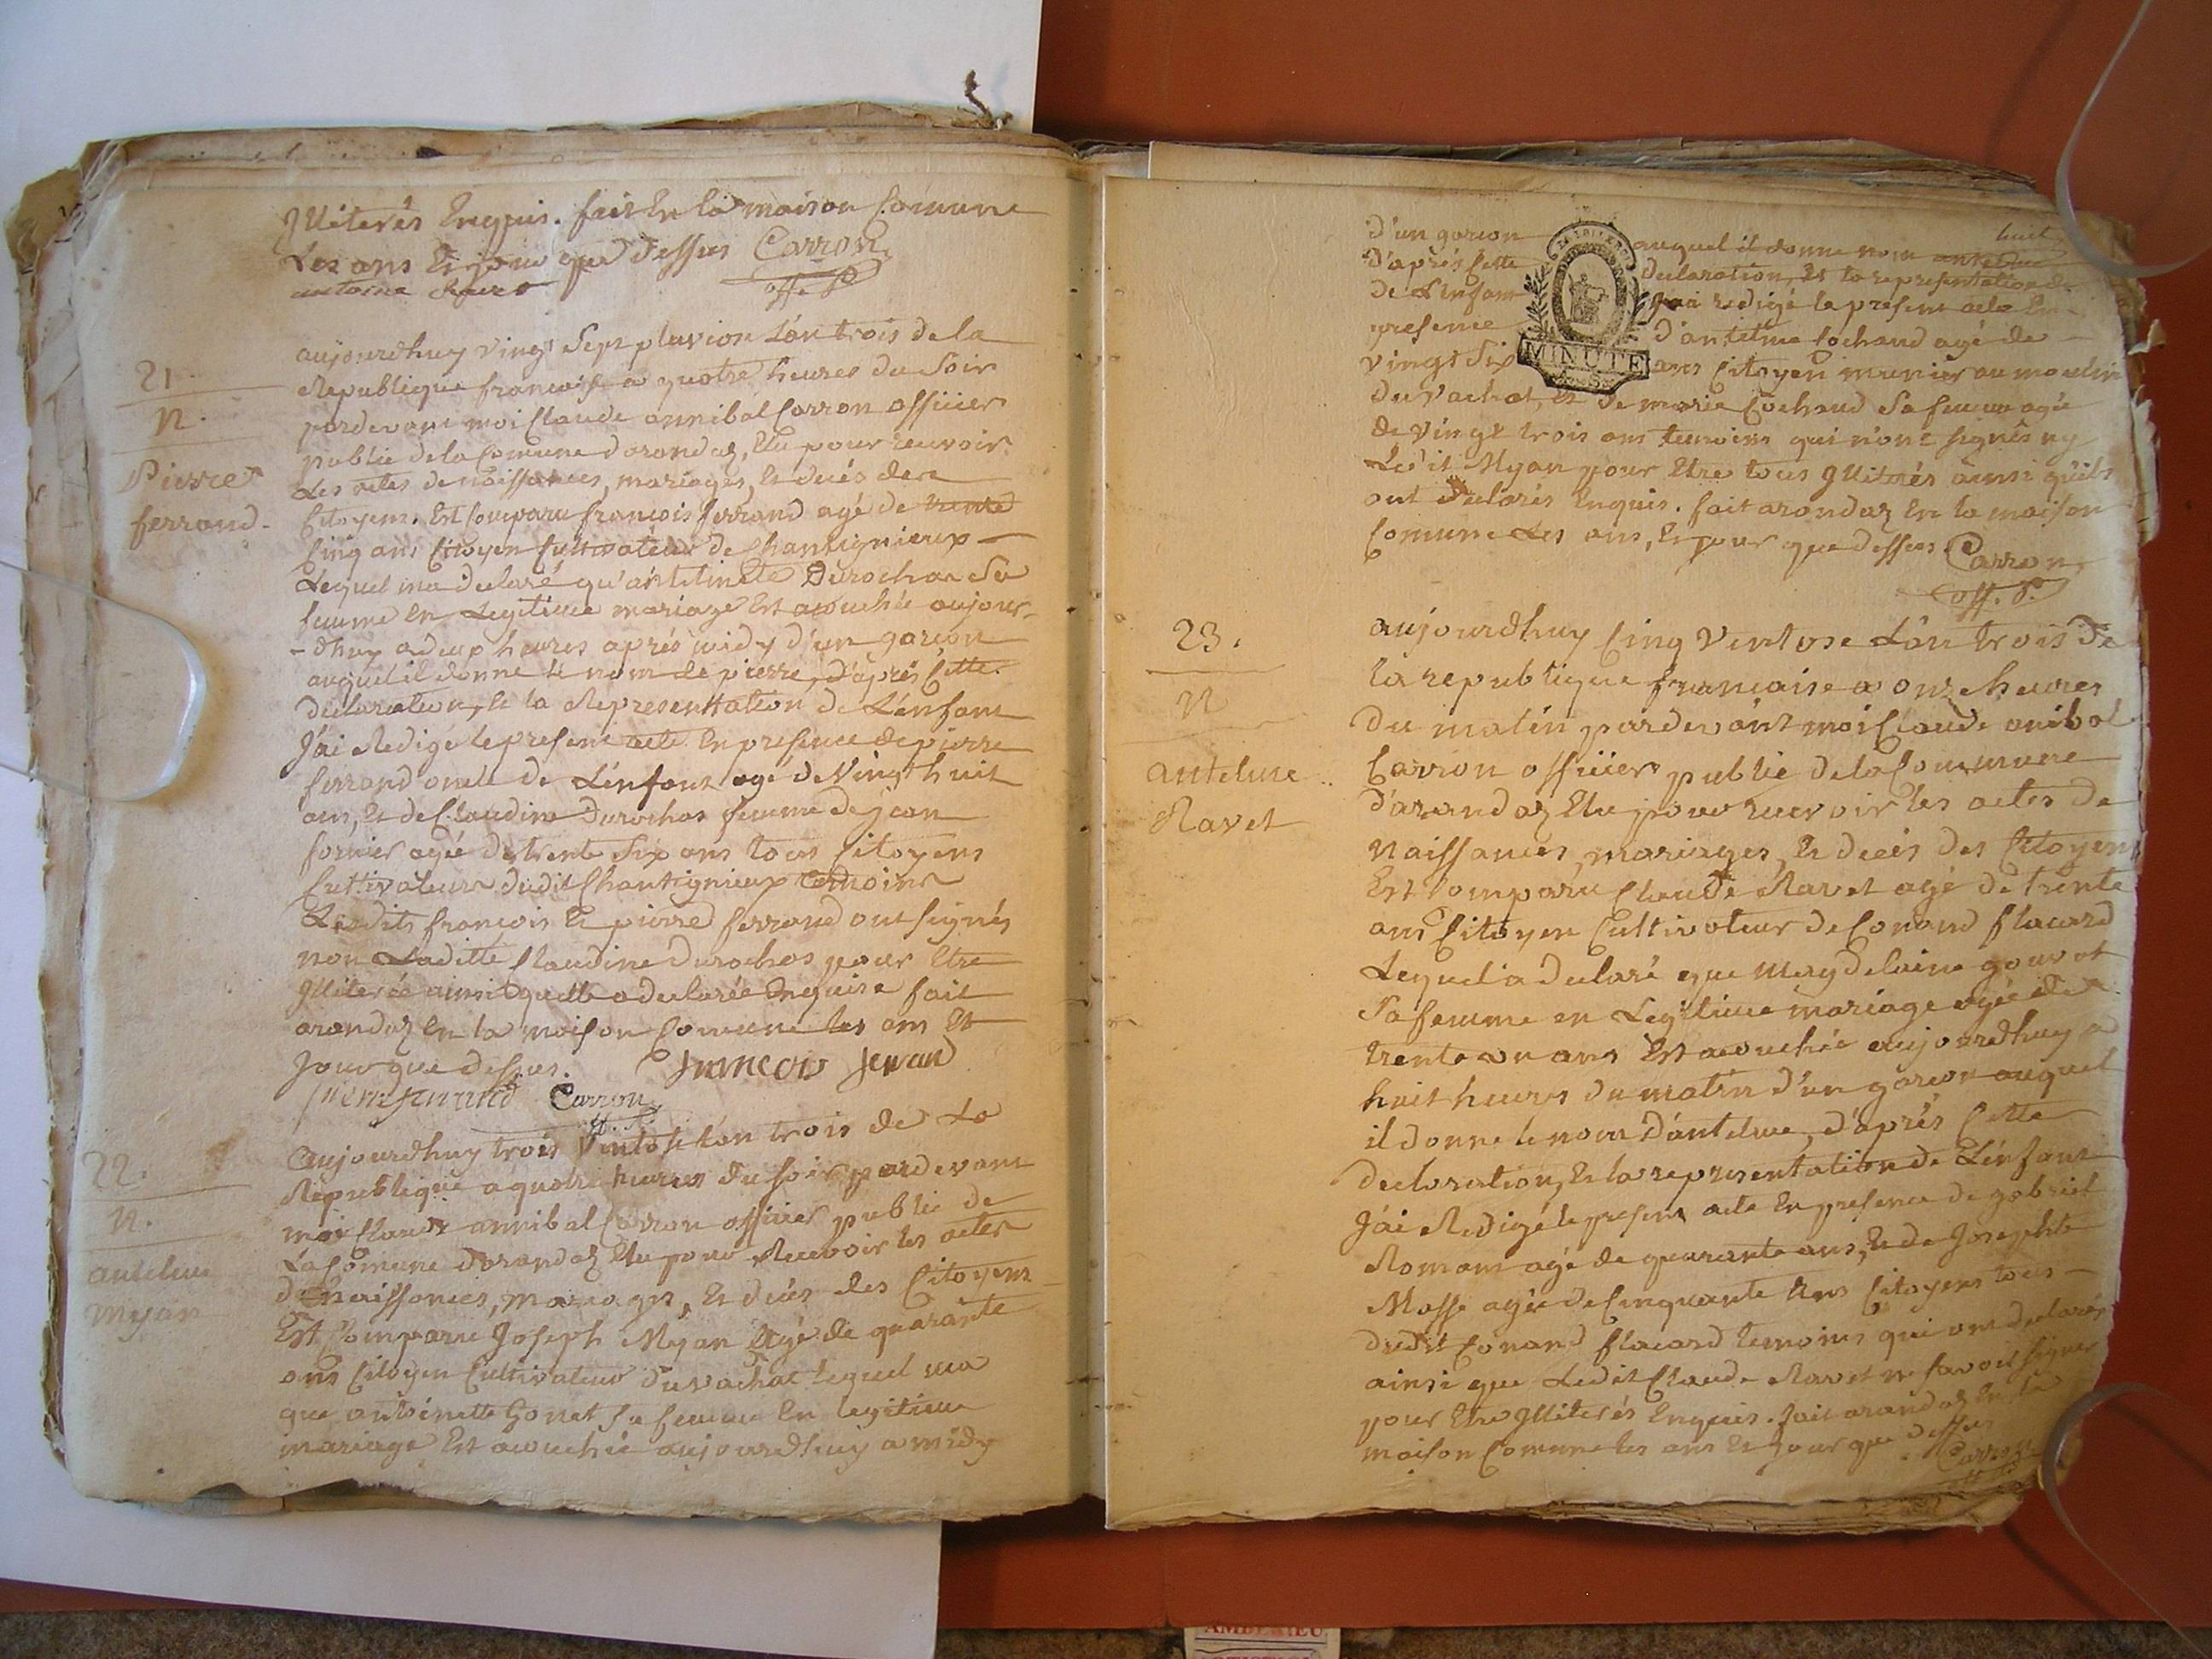 Illiterés Enquis. fait En la maison Comune
Les ans Et jour que dessus Carron
off. P.
21
N.
Pierre
ferrand.
aujourdhuy vingt Sept pluvion L'an trois de la
Republique francoise a quatre heures du Soir
pardevant moi Claude annibal Carron officier
public de la Comune darandaz, Elu pour recevoir
Les actes de naissances, mariages, Et decés des
Citoyens. Est Comparu francois ferrand agé de trente
Cinq ans Citoyen Cultivateur de Chantignieux
Lequel ma declaré qu'antelmette Durochas Sa
femme En Legitime mariage Est acouchée aujour-
-dhuy a deux heures aprés midy d'un garcon
auquel il donne le nom de pierre, d'aprés Cette
declaration, Et la Representtation de L'enfant
J'ai Redigé le present acte En presence de pierre
ferrand oncle de L'enfant agé de Vingt huit
ans, Et de Claudine Durochas femme de jean
fornier agée de trente Six ans tous Citoyens
Cultivateurs dudit Chantignieux temoins
Lesdits francois Et pierre ferrand ont signés
non Laditte Claudine Durochas pour Etre
Illiterée ainsi quelle a declarée Enquise fait
arandaz En la maison Comune les ans Et
Jour que dessus. francois ferrand
Carron
22.
N.
antelme
Myan
aujourdhuy trois Ventose L'an trois de La
Republique a quatre heures du soir pardevant
moi Claude annibal Carron officier public de
La Comune d'arandaz Elu pour Recevoir les actes
de naissances, mariages, Et decés des Citoyens
Est Comparu Joseph Myan agé de quarante
ans Citoyen Cultivateur du vachat lequel ma
que antoinette Gonet sa femme En legitime
mariage Est acouchée aujourdhuy a midy
d'un garcon auquel il donne nom antelme
d'aprés Cette declaration, Et la representation
de L'enfant j'ai redigé le present acte En
presence d'antelme Cochand agé de
vingt Six ans Citoyen munier au moulin
du vachat, Et de marie Cochand Sa femme agée
de vingt trois ans temoins qui n'ont signés ny
Ledit Myan pour Etre tous Illiterés ainsi qu'ils
ont declarés Enquis. fait arandaz En la maison
Comune Les ans, Et jour que dessus Carron
off. P.
MINUTE
23.
N
antelme
Ravet
aujourdhuy Cinq Ventose L'an trois de
la republique francaise a onze heures
du matin pardevant moi Claude anibal
Carron officier public de la Commune
d'arandaz Elu pour recevoir les actes de
naissances, mariages, Et decés des Citoyens
Est Comparu Claude Ravet agé de trente
ans Citoyen Cultivateur de Conand flacard
Lequel a declaré que Magdelaine gouvot
Sa femme en Legitime mariage agée de
trente un ans Est acouchée aujourdhuy a
huit heures du matin d'un garcon auquel
il donne le nom d'antelme, d'aprés Cette
declaration, Et la representation de L'enfant
J'ai Redigé le present acte En presence de gabriel
Romans agé de quarante ans, Et de Josephte
Masse agée de Cinquante ans Citoyens tous
dudit Conand flacard temoins qui ont declarés
ainsi que Ledit Claude Ravet ne savoir signer
pour Etre Illiterés Enquis. fait arandaz En la
maison Comune les ans Et jour que dessus
Carron